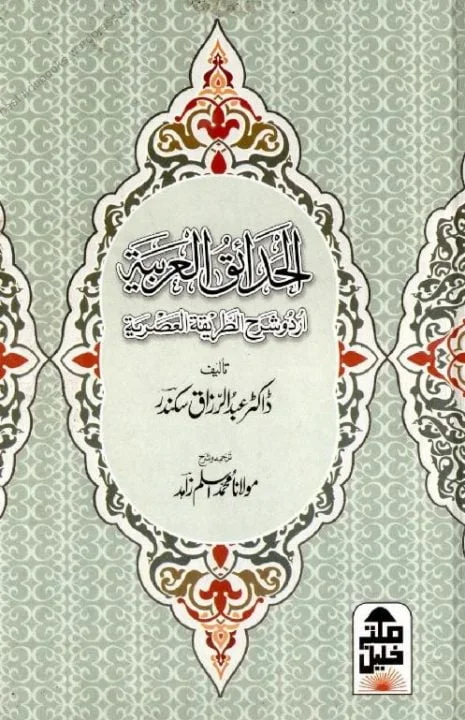 الحدائق العربية
اردو شرح الطریقۃ العصریۃ
تالیف
ڈاکٹر عبد الرزاق سکندر
ترجمہ و شرح
مولانا محمد اسلم زاہد
مکتبہ خلیل